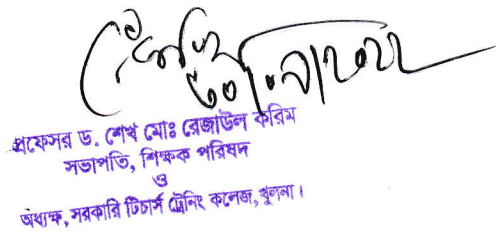 প্রফেসর ড. শেখ মোঃ রেজাউল করিম
সভাপতি, শিক্ষক পরিষদ
ও
অধ্যক্ষ, সরকারি টিচার্স ট্রেনিং কলেজ, খুলনা।